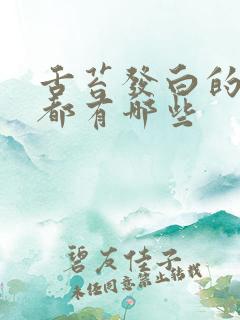 舌苔發白的
都有哪些
碧友佳子
未经同意禁止转载